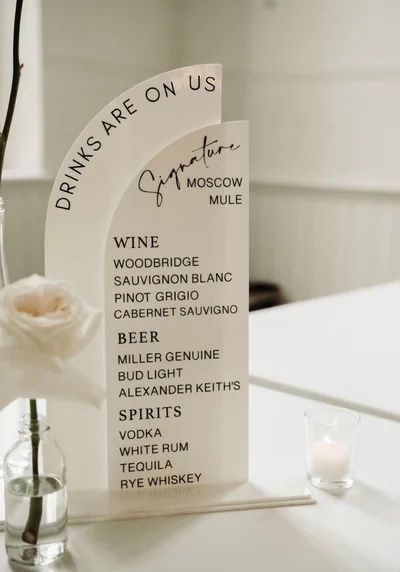 DRINKS ARE ON US
Signature
MOSCOW
MULE
WINE
WOODBRIDGE
SAUVIGNON BLANC
PINOT GRIGIO
CABERNET SAUVIGNO
BEER
MILLER GENUINE
BUD LIGHT
ALEXANDER KEITH'S
SPIRITS
VODKA
WHITE RUM
TEQUILA
RYE WHISKEY